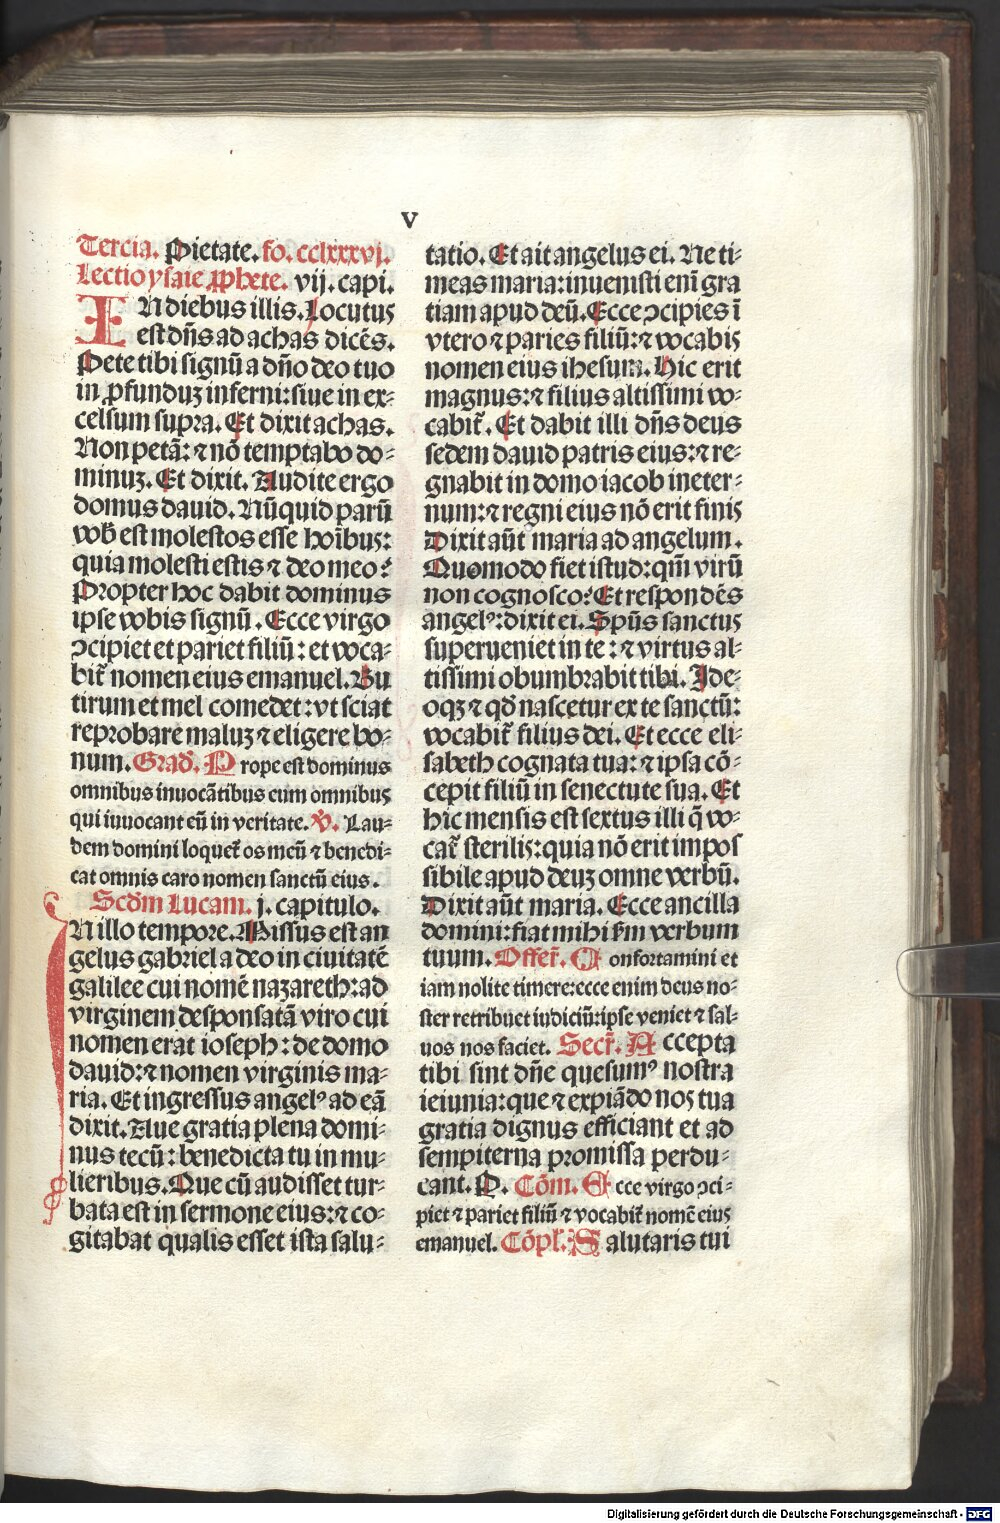 V
Tercia. Pietate. fo. cclxxxvj.
Lectio ysaie ꝓphete. vij. capi.
IN diebus illis. Locutus
est dn̄s ad achas dicēs.
Pete tibi signū a dn̄o deo tuo
in ꝓfunduꝫ inferni: siue in ex⸗
celsum supra. Et dixit achas.
Non petā: ⁊ nō temptabo do⸗
minuꝫ. Et dixit. Audite ergo
domus dauid. Nūquid parū
vob̄ est molestos esse hoı̄bus:
quia molesti estis ⁊ deo meo?
Propter hoc dabit dominus
ipse vobis signū. Ecce virgo
ↄcipiet et pariet filiū: et voca⸗
bit̄ nomen eius emanuel. Bu
tirum et mel comedet: vt sciat
reprobare maluꝫ ⁊ eligere bo⸗
num. Grad. Prope est dominus
omnibus inuocātibus eum omnibus
qui inuocant eū in veritate. V̇. Lau⸗
dem domini loquet̄ os meū ⁊ benedi⸗
cat omnis caro nomen sanctū eius.
Scd̄m Lucam. j. capitulo.
IN illo tempore. Missus est an
gelus gabriel a deo in ciuitatē
galilee cui nomē nazareth: ad
virginem desponsatā viro cui
nomen erat ioseph: de domo
dauid: ⁊ nomen virginis ma⸗
ria. Et ingressus angelꝰ ad eā
dixit. Aue gratia plena domi⸗
nus tecū: benedicta tu in mu⸗
lieribus. Que cū audisset tur⸗
bata est in sermone eius: ⁊ co⸗
gitabat qualis esset ista salu⸗
tatio. Et ait angelus ei. Ne ti⸗
meas maria: inuenisti enī gra
tiam apud deū. Ecce ↄcipies ī
vtero ⁊ paries filiū: ⁊ vocabis
nomen eius ihesum. Hic erit
magnus: ⁊ filius altissimi vo⸗
cabit̄. Et dabit illi dn̄s deus
sedem dauid patris eius: ⁊ re⸗
gnabit in domo iacob in eter⸗
num: ⁊ regni eius nō erit finis
Dixit aūt maria ad angelum.
Quomodo fiet istud: qm̄ virū
non cognosco? Et respondēs
angelꝰ: dixit ei. Spūs sanctus
superueniet in te: ⁊ virtus al⸗
tissimi obumbrabit tibi. Ide⸗
oqꝫ ⁊ qd̄ nascetur ex te sanctū:
vocabit̄ filius dei. Et ecce eli⸗
sabeth cognata tua: ⁊ ipsa cō⸗
cepit filiū in senectute sua. Et
hic mensis est sextus illi q̄ vo⸗
cat̄ sterilis: quia nō erit impos
sibile apud deuꝫ omne verbū.
Dixit aūt maria. Ecce ancilla
domini: fiat mihi ẜm verbum
tuum. Offer̄. Confortamini et
iam nolite timere: ecce enim deus no⸗
ster retribuet iudiciū: ipse veniet ⁊ sal⸗
uos nos faciet. Secr̄. Accepta
tibi sint dn̄e quesumꝰ nostra
ieiunia: que ⁊ expiādo nos tua
gratia dignus efficiant et ad
sempiterna promissa perdu⸗
cant. P. Cōm. Ecce virgo ↄci⸗
piet ⁊ pariet filiū ⁊ vocabit̄ nomē eius
emanuel. Cōpl̄. Salutaris tui
Digitalisierung gefördert durch die Deutsche Forschungsgemeinschaft - DFG